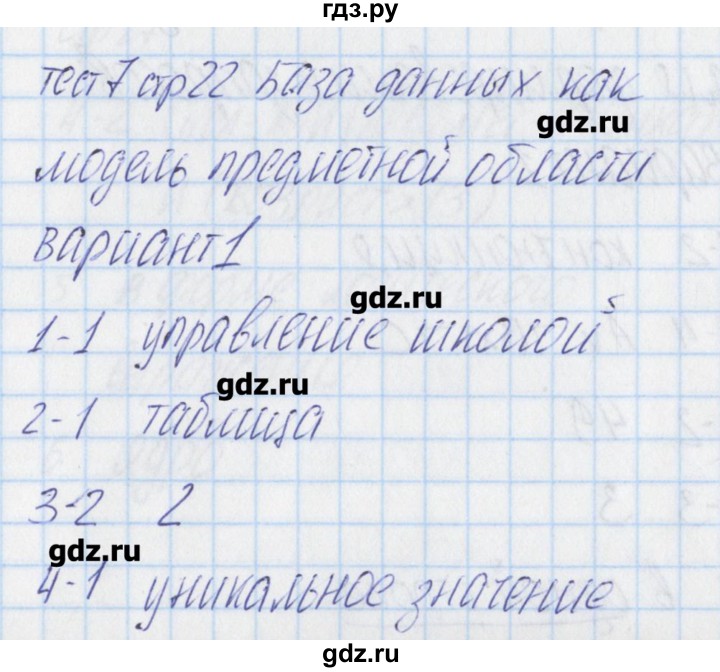 гдз.ру
тест 7 стр 22 База данных как
gdz.ru
модель предметной области
вариант 1
gdz.ru
1-1 управление школой
gdz.ru
2-1 таблица
3-2 2
gdz.ru
4-1 уникальное значение